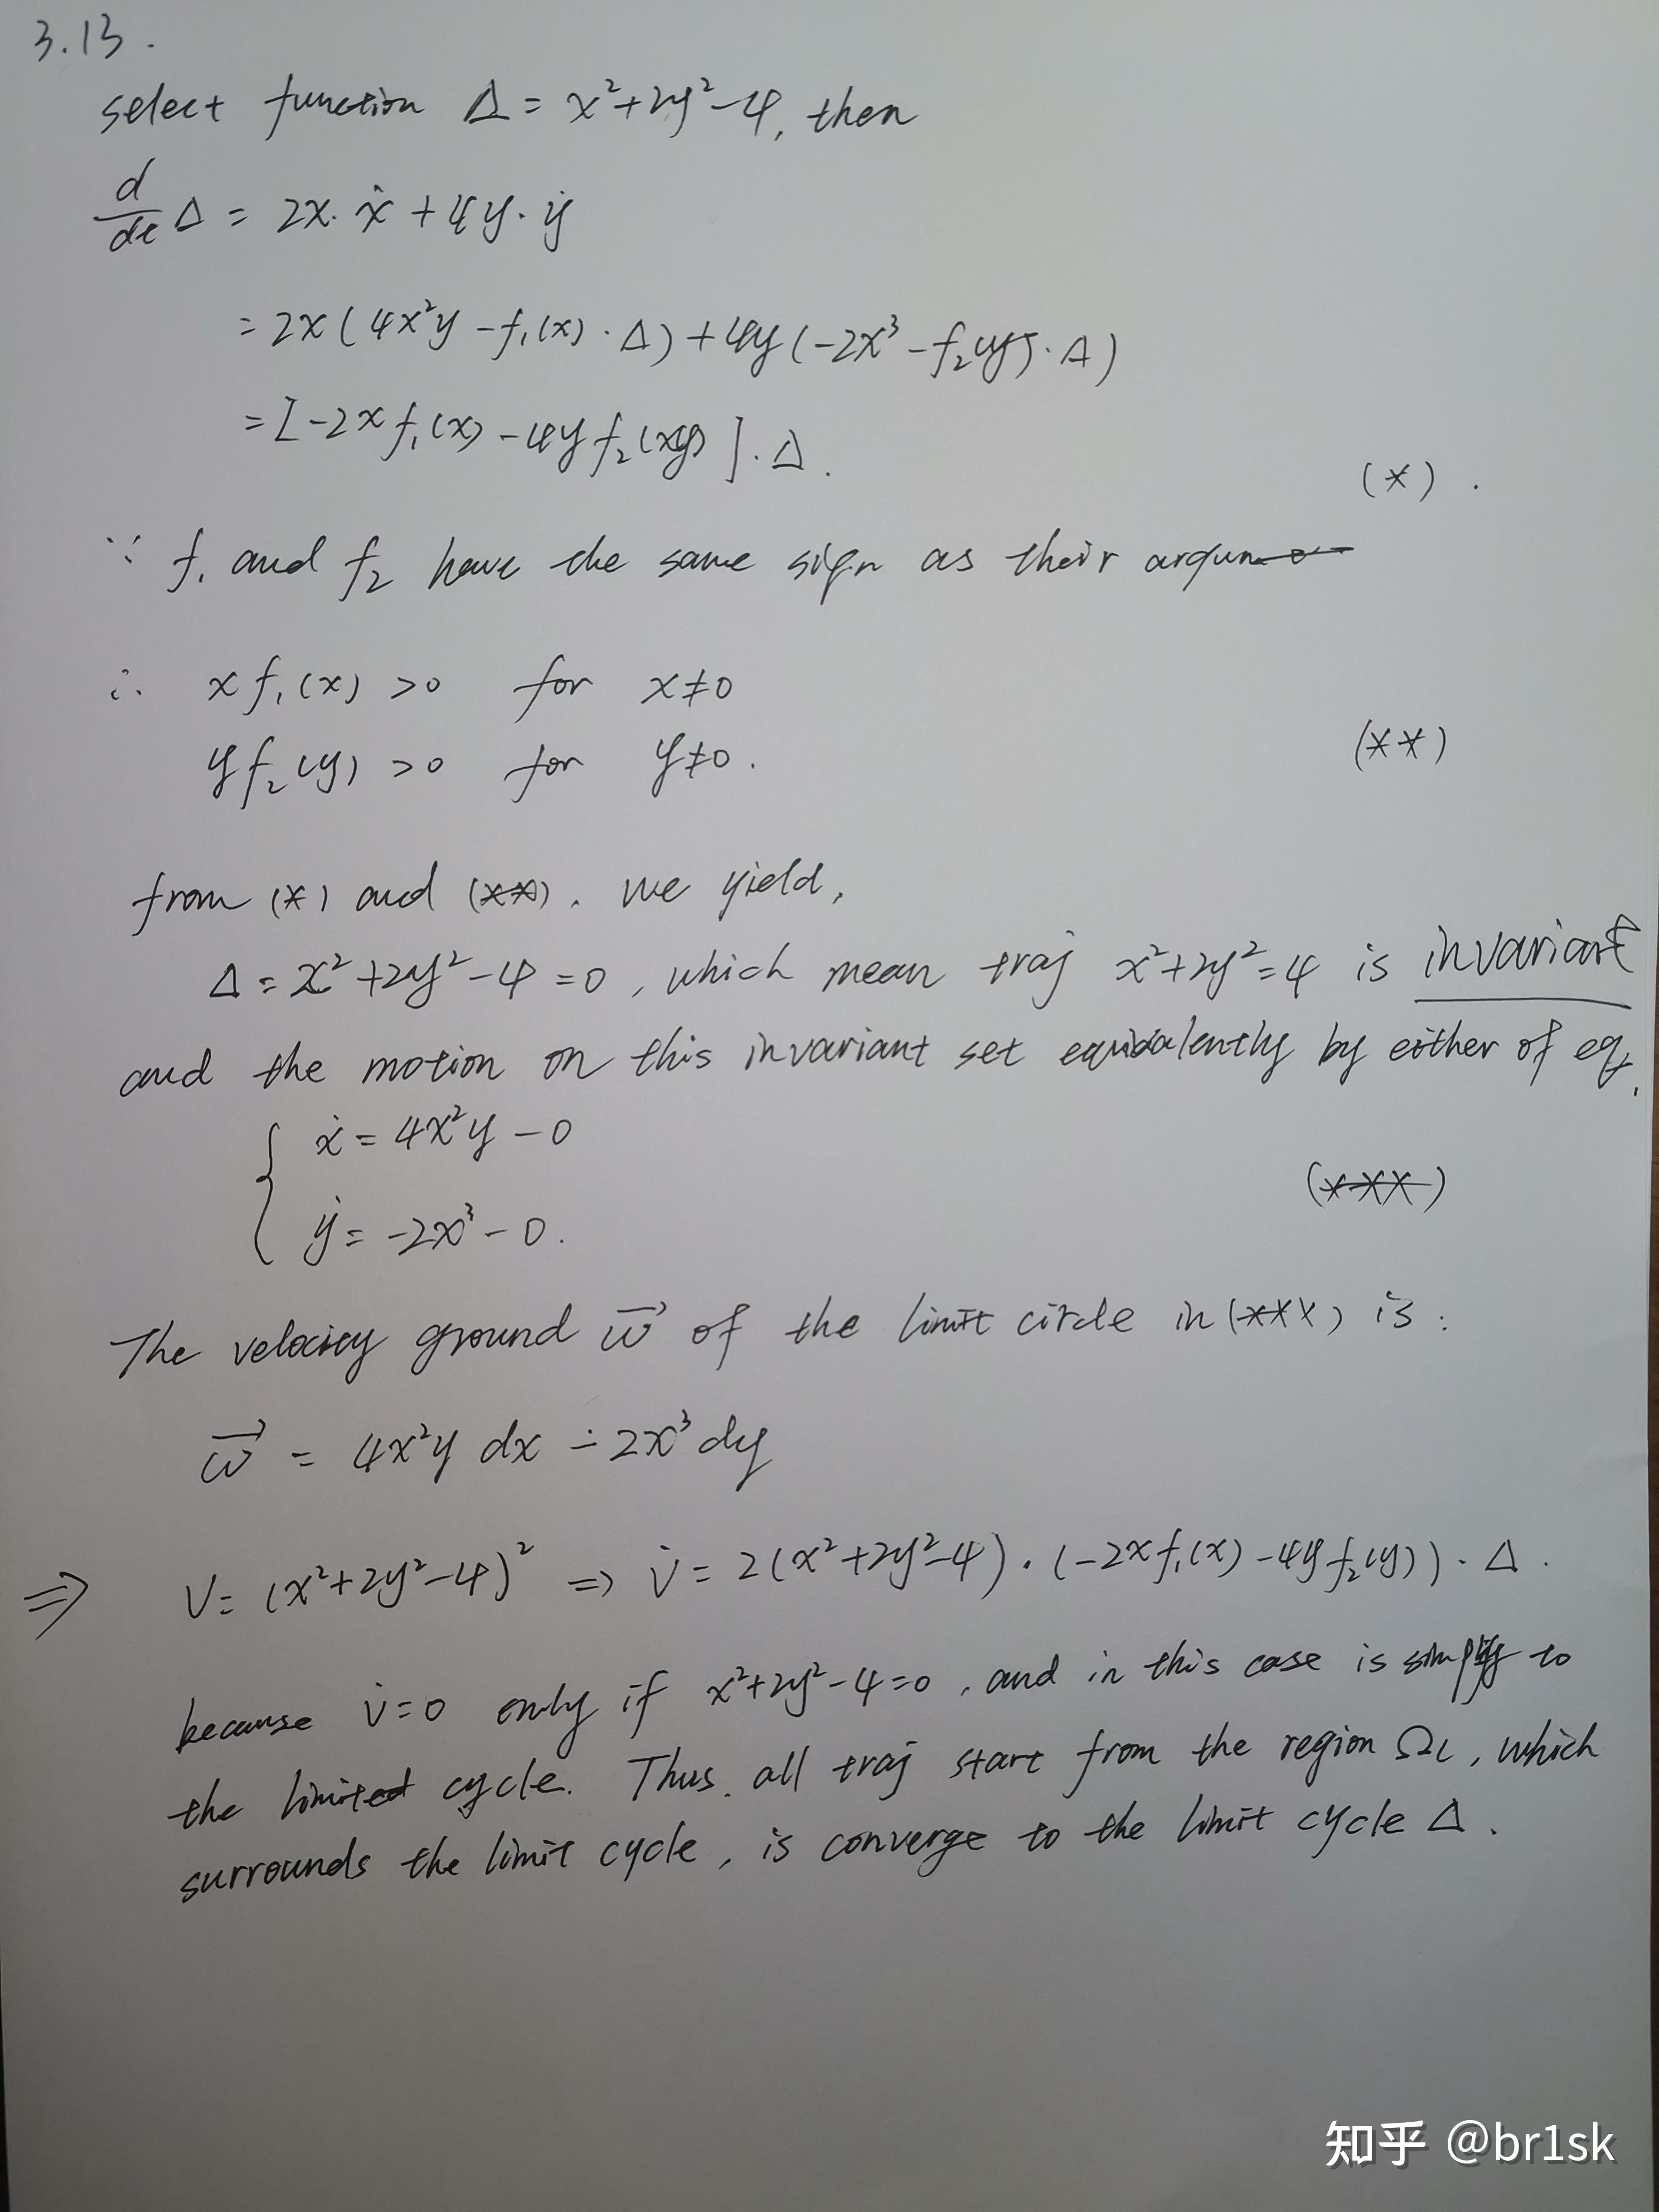 3.13.
select function Δ = x²+2y²-4, then
d/dt Δ = 2x·ẋ + 4y·ẏ
= 2x(4x²y - f₁(x)·Δ) + 4y(-2x³ - f₂(y)·Δ)
= [-2x f₁(x) - 4y f₂(y)]·Δ. (*).
∵ f₁ and f₂ have the same sign as their
∴ x f₁(x) >0 for x≠0
y f₂(y) >0 for y≠0. (**)
from (*) and (**). we yield,
Δ = x²+2y²-4 = 0, which mean traj x²+2y²=4 is invariant
and the motion on this invariant set equivalently by either of eq.
ẋ = 4x²y - 0
(***)
ẏ = -2x³ - 0.
The velocity ground w⃗ of the limit circle in (***) is:
w⃗ = 4x²y dx - 2x³ dy
⇒ V = (x²+2y²-4)² ⇒ V̇ = 2(x²+2y²-4)·(-2x f₁(x) - 4y f₂(y))·Δ.
because V̇=0 only if x²+2y²-4=0, and in this case is simplify to
the limited cycle. Thus, all traj start from the region Ω_L, which
surrounds the limit cycle, is converge to the limit cycle Δ.
知乎 @br1sk